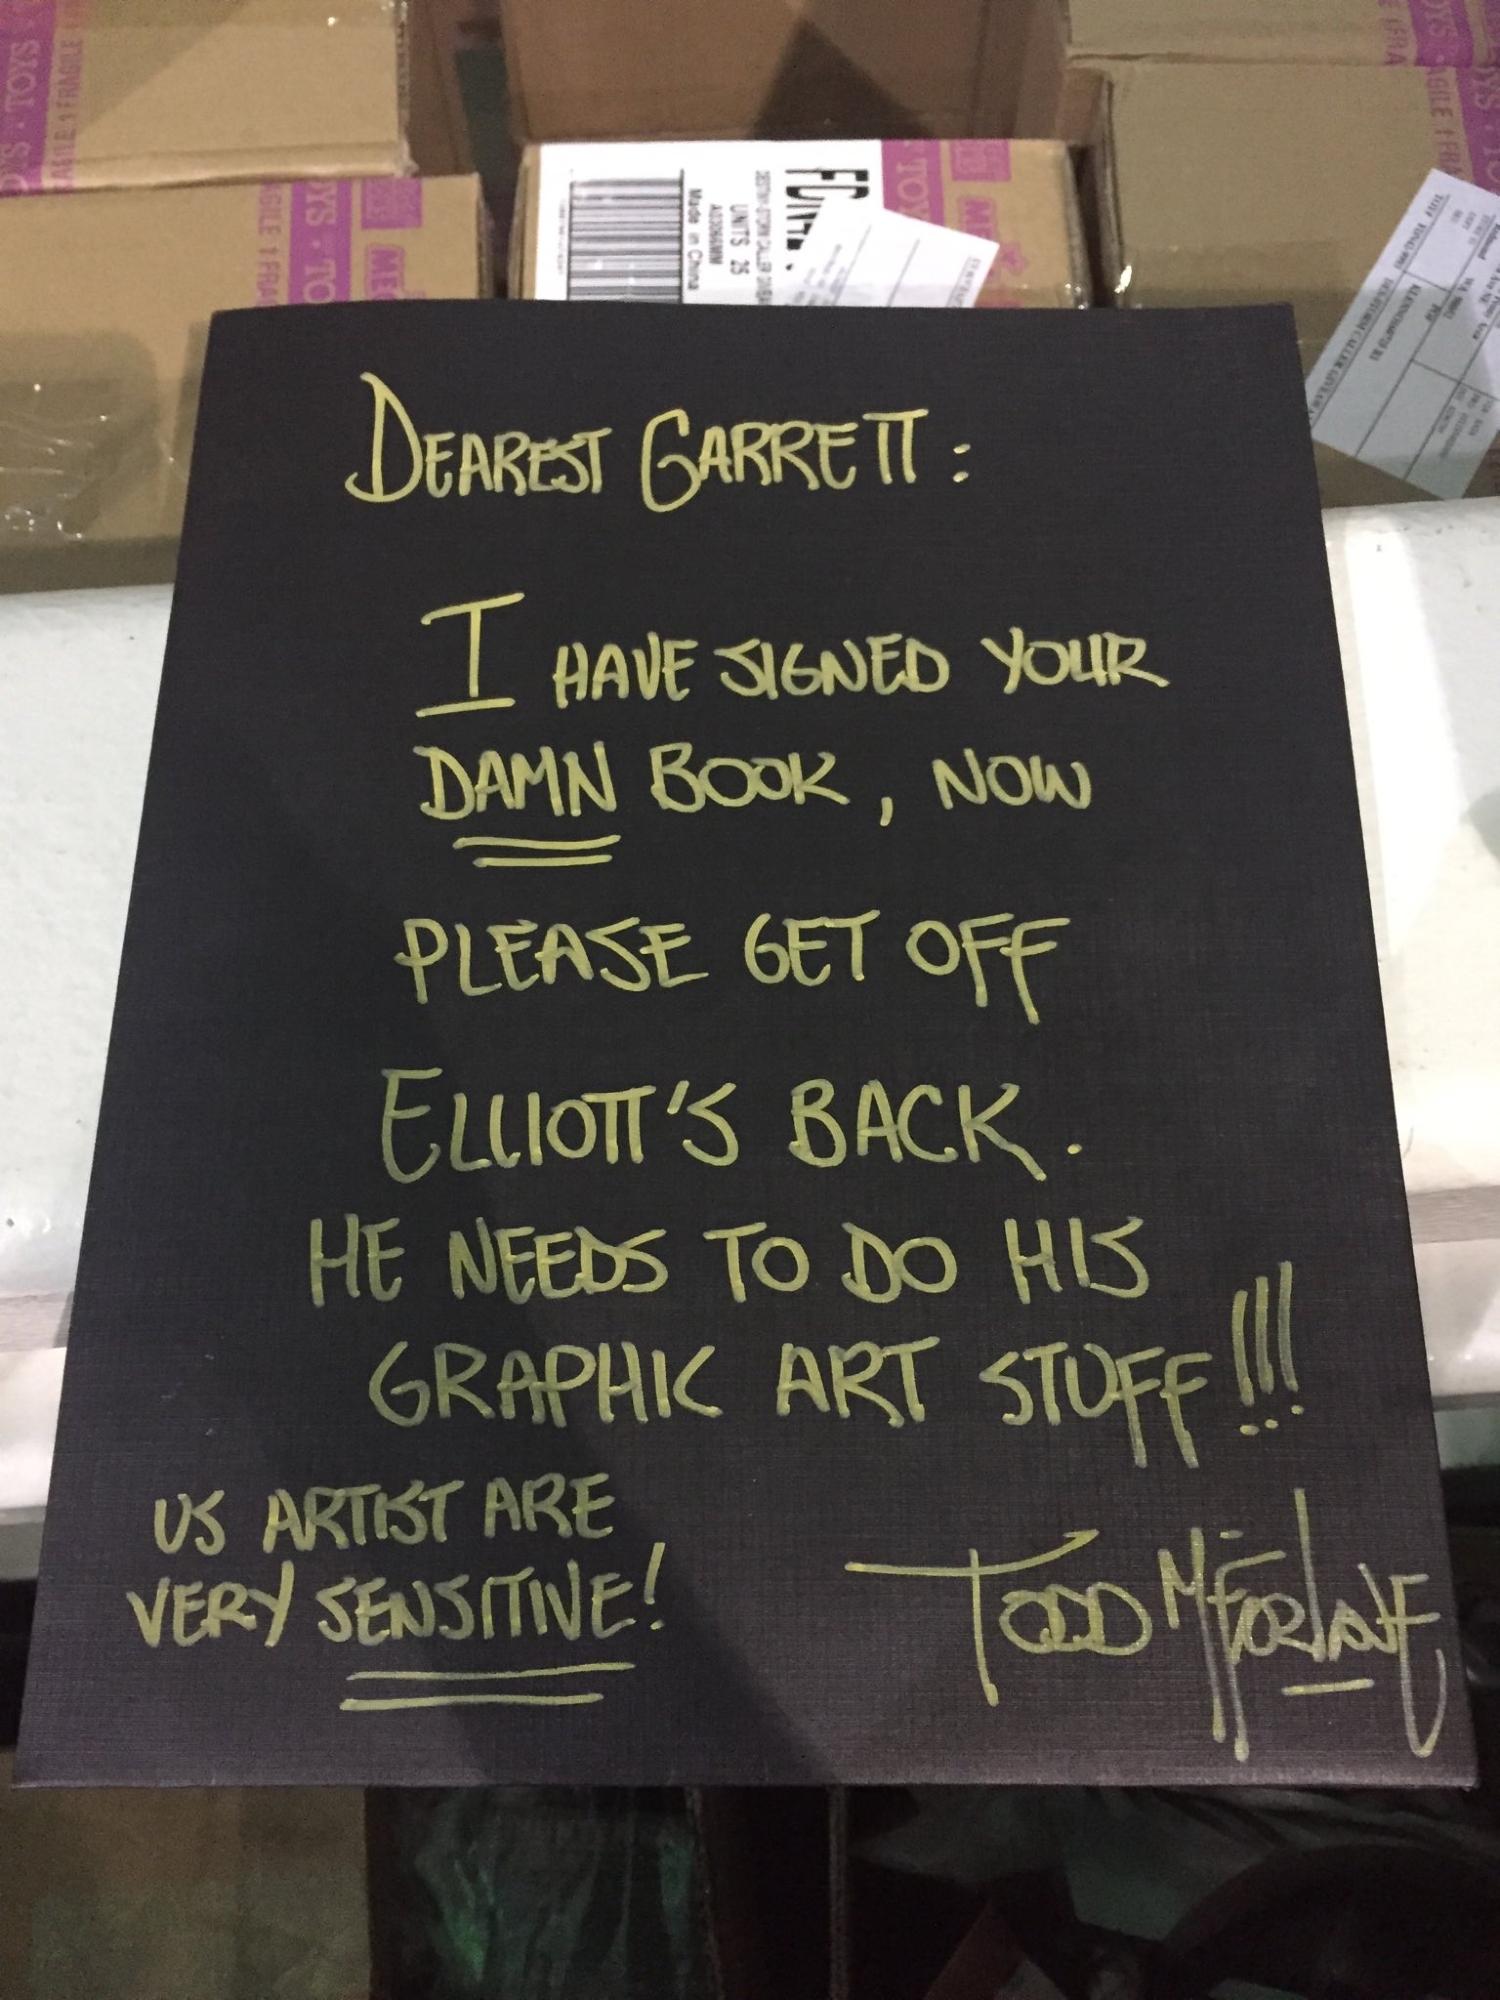 TOYS · TOYS
FRAGILE ! FRAGILE
TOYS
Made in China
UNITS 25
DEAREST GARRETT:
I HAVE SIGNED YOUR
DAMN BOOK, NOW
PLEASE GET OFF
ELLIOTT'S BACK.
HE NEEDS TO DO HIS
GRAPHIC ART STUFF!!!
US ARTIST ARE
VERY SENSITIVE!
TODD McFARLANE